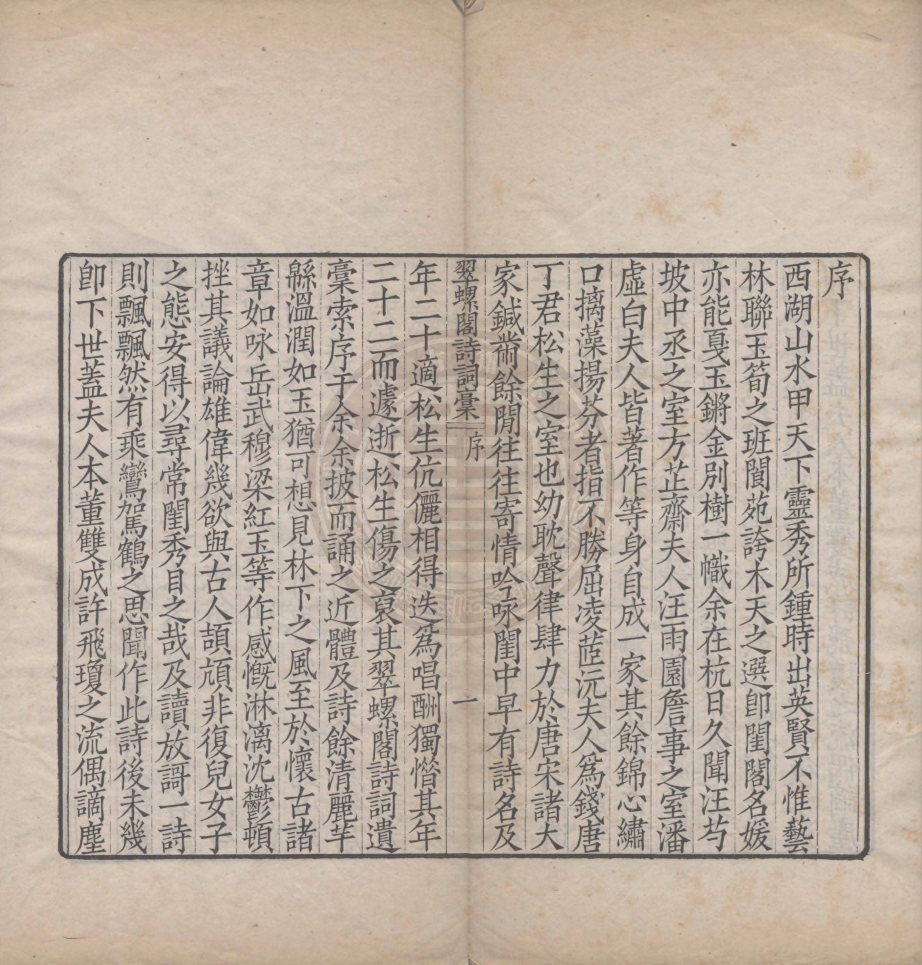 序
西湖山水甲天下靈秀所鍾時出英賢不惟藝
林聯玉筍之班閬苑誇木天之選卽閨閣名媛
亦能戛玉鏘金別樹一幟余在杭日久聞汪芍
坡中丞之室方芷齋夫人汪雨園詹事之室潘
虛白夫人皆著作等身自成一家其餘錦心繡
口摛藻揚芬者指不勝屈凌茝沅夫人爲錢唐
丁君松生之室也幼耽聲律肆力於唐宋諸大
家鍼黹餘閒往往寄情吟咏閨中早有詩名及
翠螺閣詩詞稾 序 一
年二十適松生伉儷相得迭爲唱酬獨惜其年
二十二而遽逝松生傷之裒其翠螺閣詩詞遺
稾索序于余余披而誦之近體及詩餘清麗芊
緜溫潤如玉猶可想見林下之風至於懷古諸
章如咏岳武穆梁紅玉等作感慨淋漓沈鬱頓
挫其議論雄偉幾欲與古人頡頏非復兒女子
之態安得以尋常閨秀目之哉及讀放謌一詩
則飄飄然有乘鸞駕鶴之思聞作此詩後未幾
卽下世蓋夫人本董雙成許飛瓊之流偶謫塵